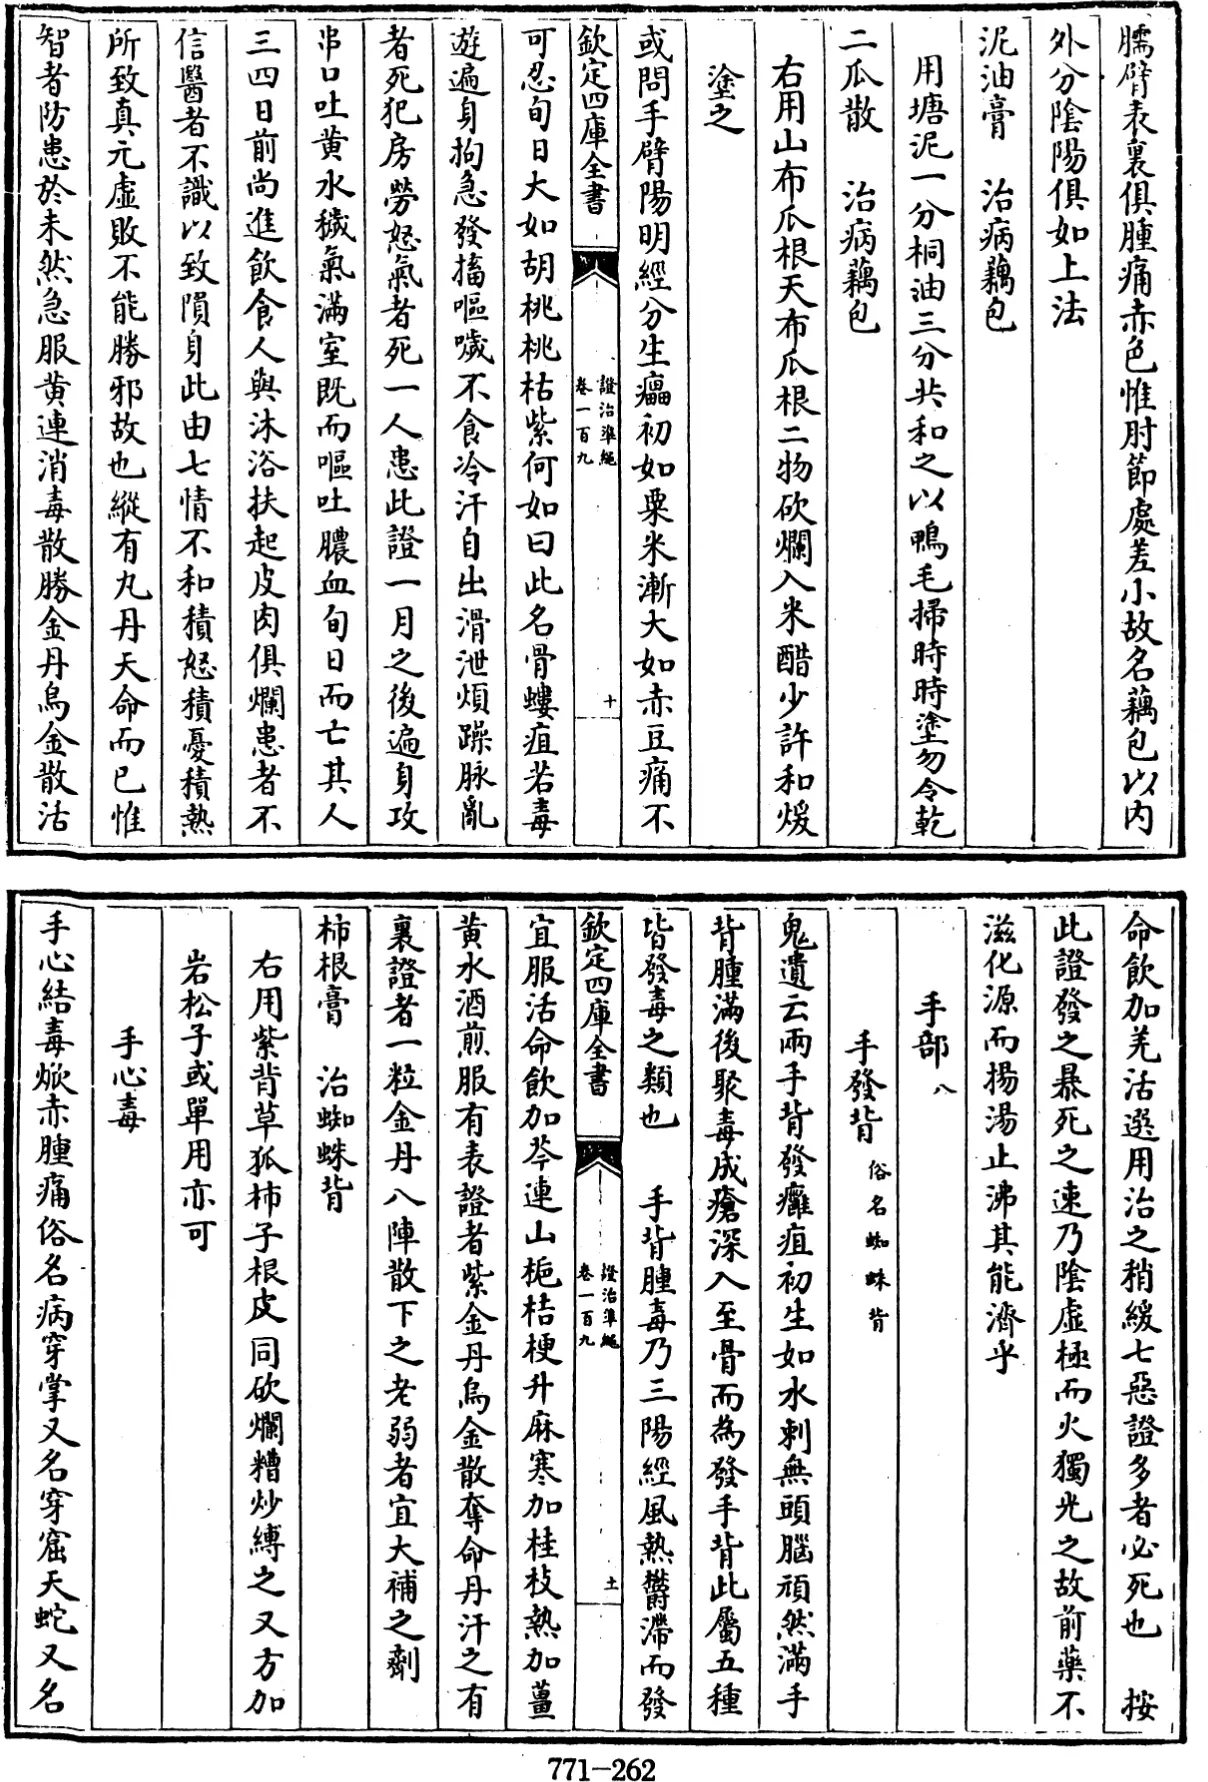 臑臂表裏俱腫痛赤色惟肘節處差小故名藕包以内
外分陰陽俱如上法
泥油膏　治病藕包
用塘泥一分桐油三分共和之以鴨毛掃時時塗勿令乾
二瓜散　治病藕包
右用山布瓜根天布瓜根二物砍爛入米醋少許和煖
塗之
或問手臂陽明經分生瘟初如粟米漸大如赤豆痛不
欽定四庫全書
證治準繩
卷一百九
十
可忍旬日大如胡桃桃枯紫何如曰此名骨螻疽若毒
遊遍身拘急發搐嘔噦不食冷汗自出滑泄煩躁脉亂
者死犯房勞怒氣者死一人患此證一月之後遍身攻
串口吐黄水穢氣滿室既而嘔吐膿血旬日而亡其人
三四日前尚進飲食人與沐浴扶起皮肉俱爛患者不
信醫者不識以致隕身此由七情不和積怒積憂積熱
所致真元虛敗不能勝邪故也縱有丸丹天命而已惟
智者防患於未然急服黄連消毒散勝金丹烏金散活
命飲加羌活選用治之稍緩七惡證多者必死也　按
此證發之暴死之速乃陰虛極而火獨光之故前藥不
滋化源而揚湯止沸其能濟乎
手部八
手發背俗名蜘蛛背
鬼遺云兩手背發癰疽初生如水刺無頭腦頑然滿手
背腫滿後聚毒成瘡深入至骨而為發手背此屬五種
皆發毒之類也　手背腫毒乃三陽經風熱鬱滯而發
欽定四庫全書
證治準繩
卷一百九
土
宜服活命飲加芩連山梔桔梗升麻寒加桂枝熱加薑
黄水酒煎服有表證者紫金丹烏金散奪命丹汗之有
裏證者一粒金丹八陣散下之老弱者宜大補之劑
柿根膏　治蜘蛛背
右用紫背草狐柿子根皮同砍爛糟炒縳之又方加
岩松子或單用亦可
手心毒
手心結毒焮赤腫痛俗名病穿掌又名穿窟天蛇又名
771-262